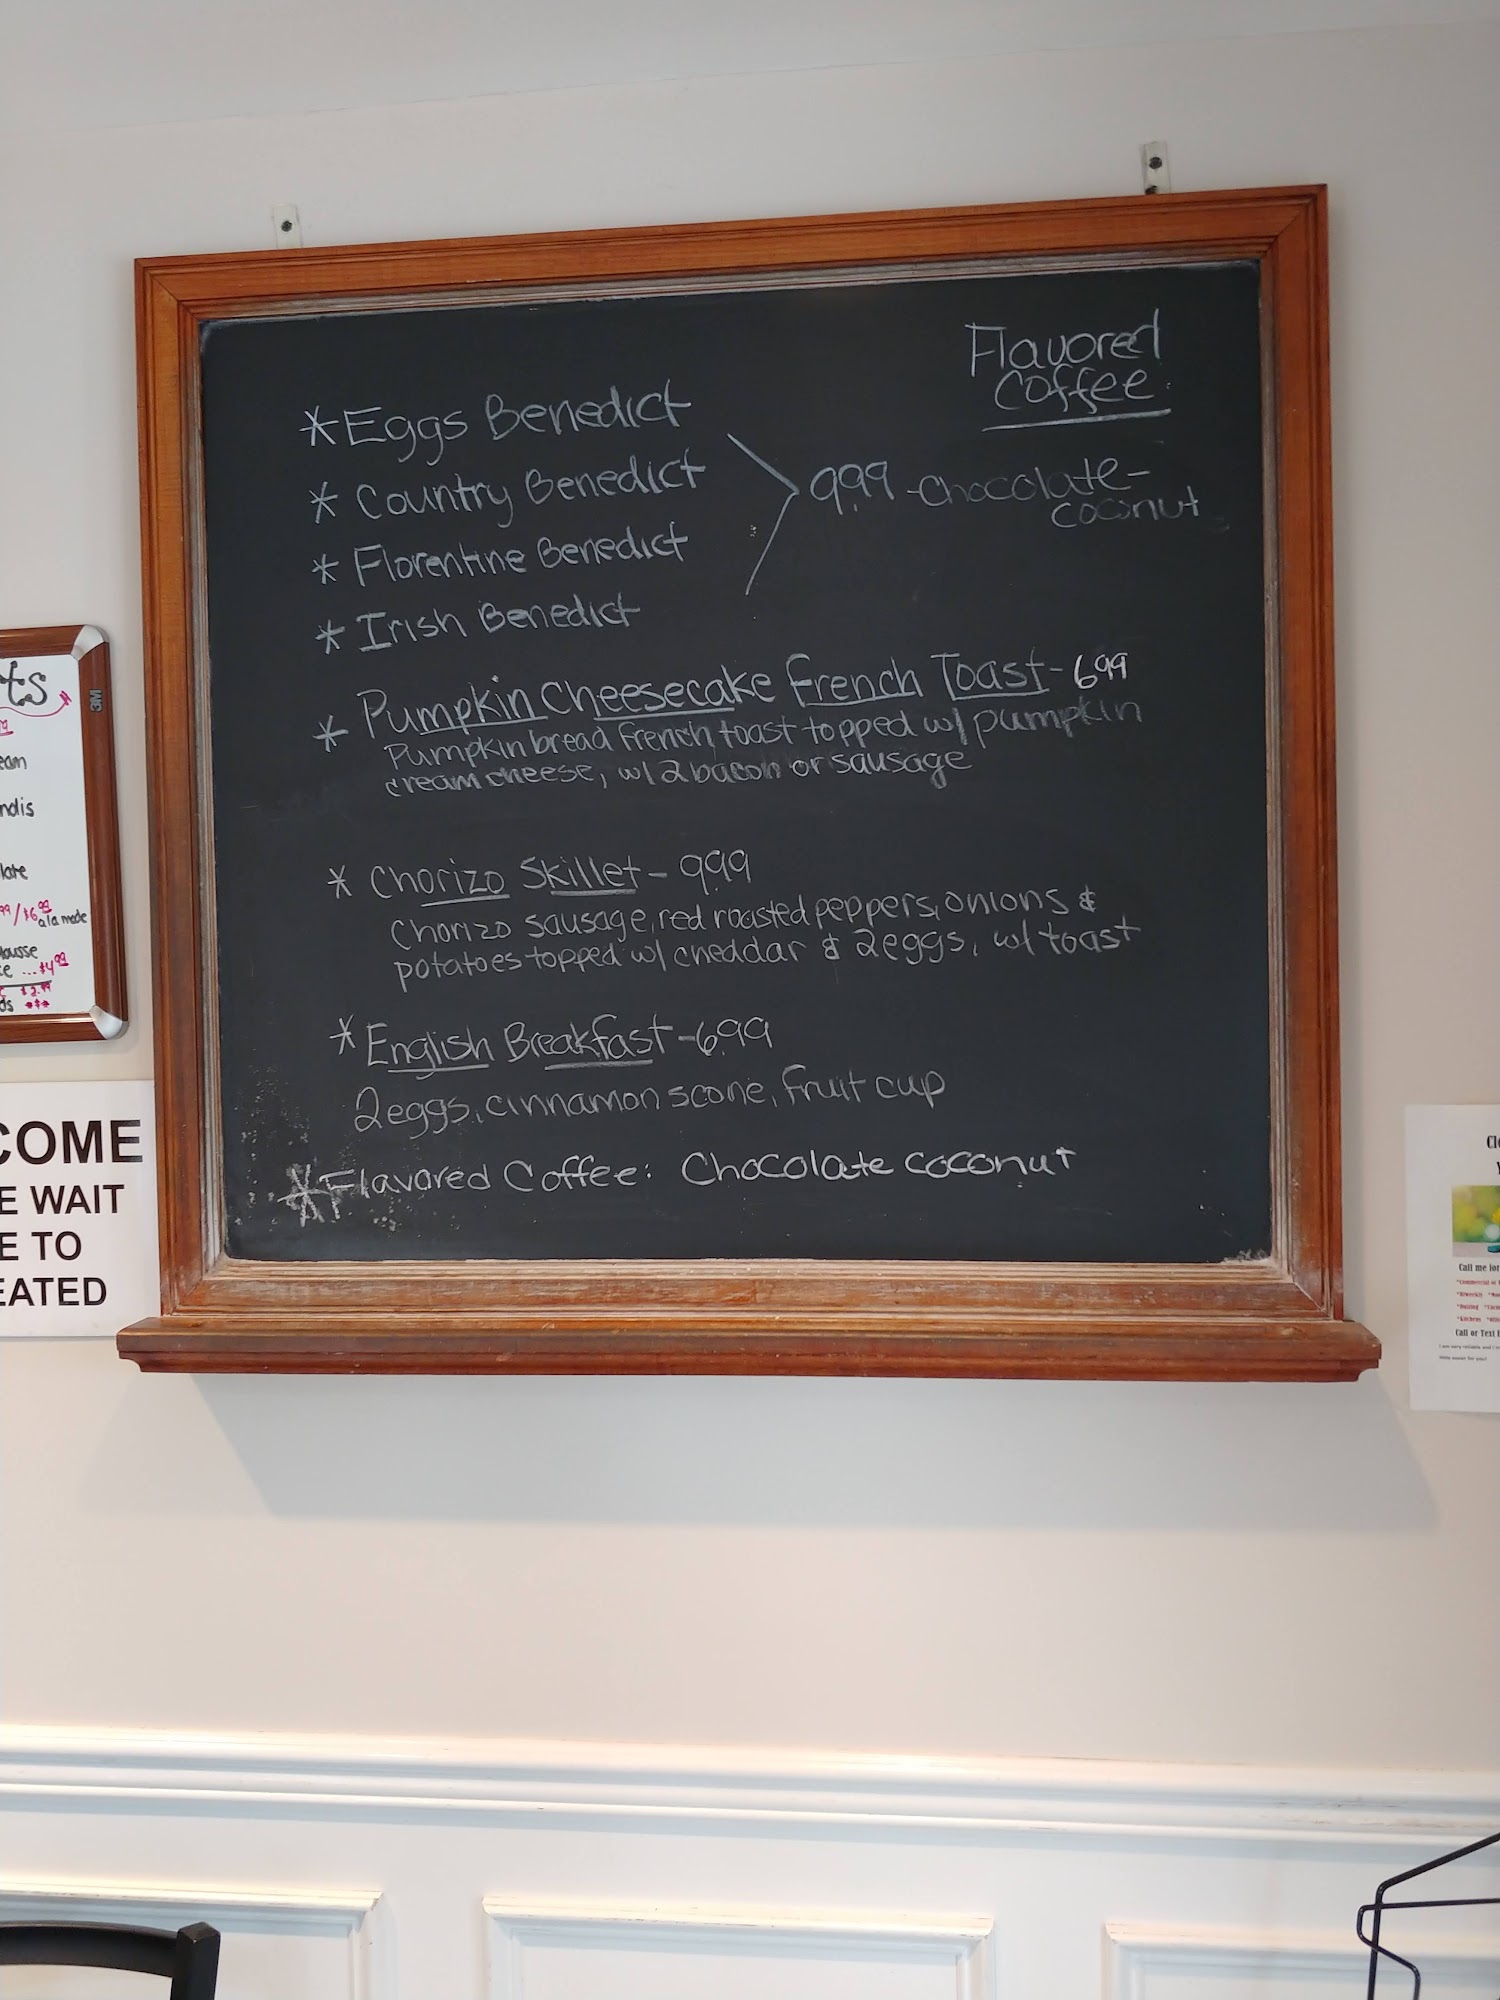 Flavored
Coffee
*Eggs Benedict
* Country Benedict
* Florentine Benedict
* Irish Benedict
999 -Chocolate-
coconut
* Pumpkin Cheesecake French Toast- 699
Pumpkin bread French toast topped w/ pumpkin
cream cheese, w/ 2 bacon or sausage
* Chorizo Skillet- 999
Chorizo sausage, red roasted peppers, onions &
potatoes topped w/ cheddar & 2 eggs, w/ toast
* English Breakfast -699
2 eggs, cinnamon scone, fruit cup
*Flavored Coffee: Chocolate coconut
ts
3M
eam
ndis
late
99/$6.99
a la mode
ousse
ce ...$4.99
$2.99
ds ***
COME
E WAIT
E TO
EATED
Cl
Call me for
Call or Text